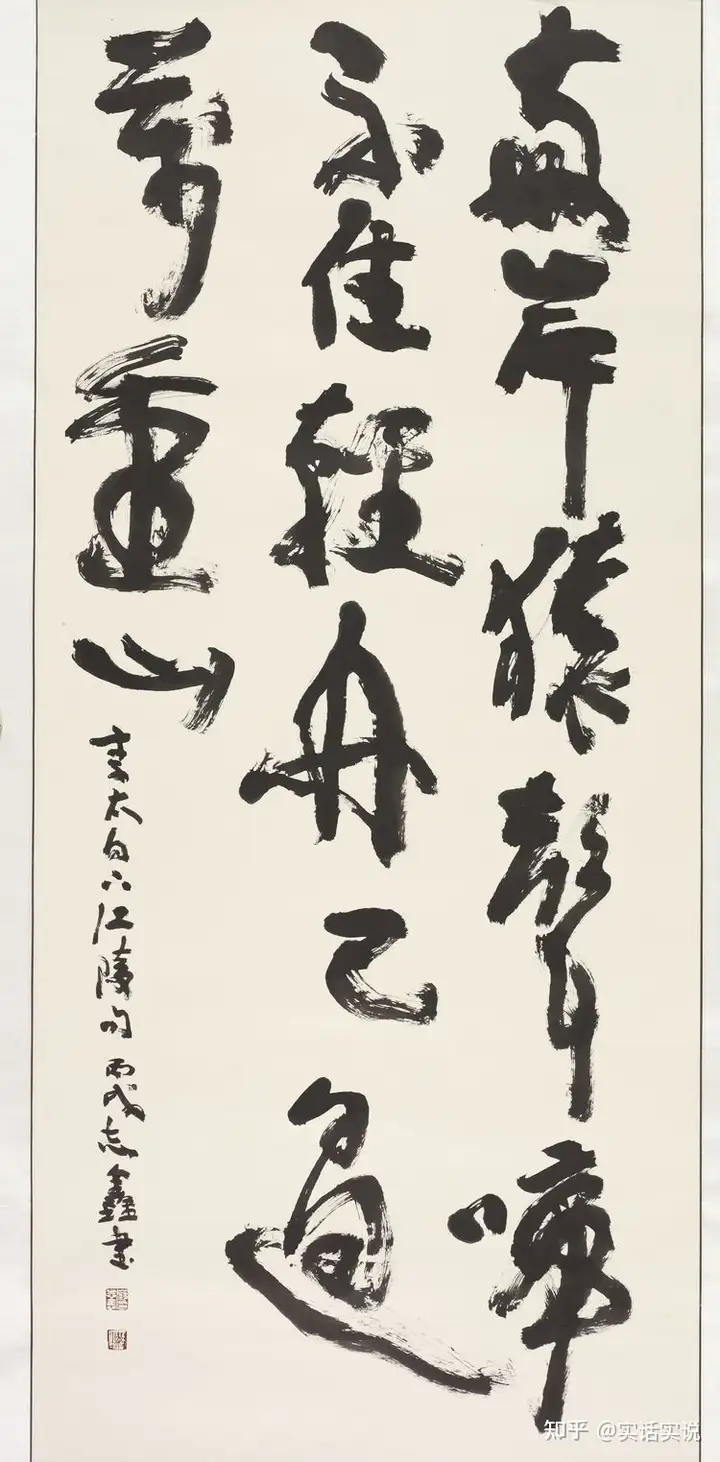 兩岸猿聲啼
不住輕舟已過
萬重山
李太白下江陵句 丙戌志鑫書
知乎 @实话实说